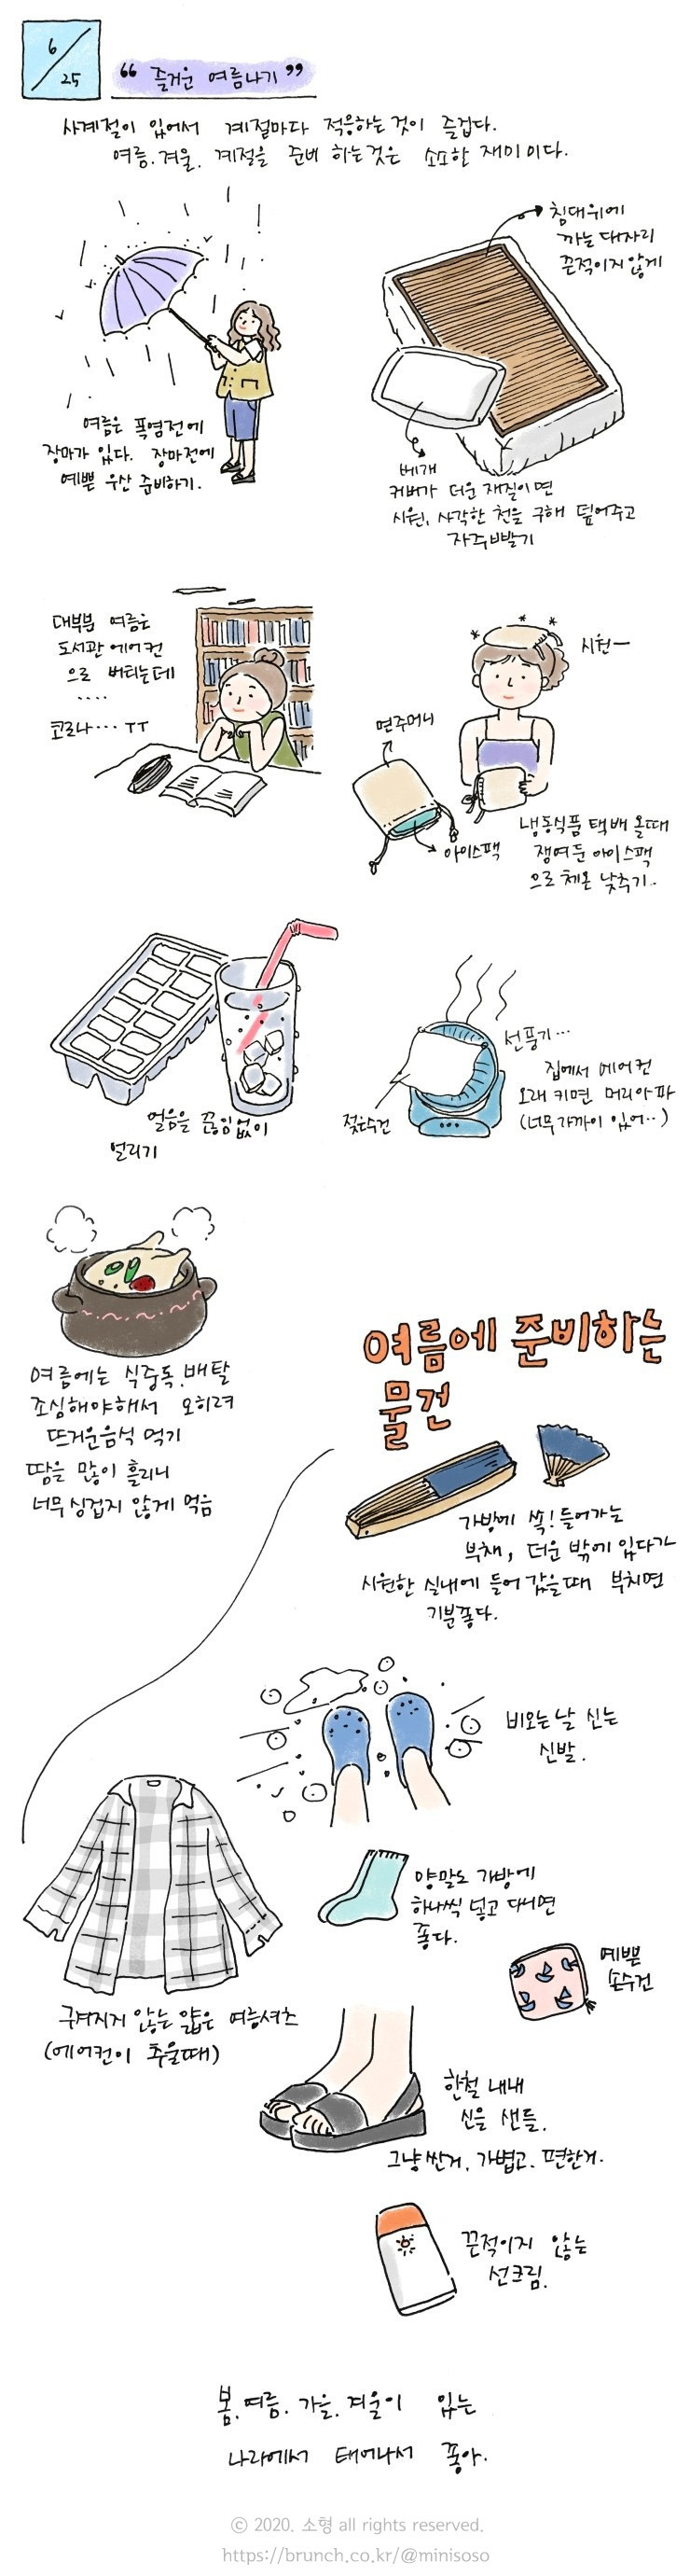 6/25
“즐거운 여름나기”
사계절이 있어서 계절마다 적응하는 것이 즐겁다.
여름.겨울. 계절을 준비 하는것은 소소한 재미이다.
여름은 폭염전에
장마가 있다. 장마전에
예쁜 우산 준비하기.
침대위에
까는 대자리
끈적이지 않게
베개
커버가 더운 재질이면
시원, 사각한 천을 구해 덮어주고
자주빨기
대부분 여름은
도서관 에어컨
으로 버티는데
....
코로나... ㅜㅜ
시원ㅡ
면주머니
아이스팩
냉동식품 택배 올때
쟁여둔 아이스팩
으로 체온 낮추기..
얼음을 끊임없이
얼리기
선풍기...
젖은수건
집에서 에어컨
오래 키면 머리아파
(너무가까이 있어..)
여름에는 식중독.배탈
조심해야해서 오히려
뜨거운음식 먹기
땀을 많이 흘리니
너무싱겁지 않게 먹음
여름에 준비하는
물건
가방에 쏙! 들어가는
부채, 더운 밖에 있다가
시원한 실내에 들어갔을때 부치면
기분좋다.
비오는날 신는
신발.
양말도 가방에
하나씩 넣고 다니면
좋다.
예쁜
손수건
구겨지지 않는 얇은 여름셔츠
(에어컨이 추울때)
한철 내내
신을 샌들.
그냥싼거, 가볍고. 편한거.
끈적이지 않는
선크림.
봄.여름.가을.겨울이 있는
나라에서 태어나서 좋아.
ⓒ 2020. 소형 all rights reserved.
https://brunch.co.kr/@minisoso